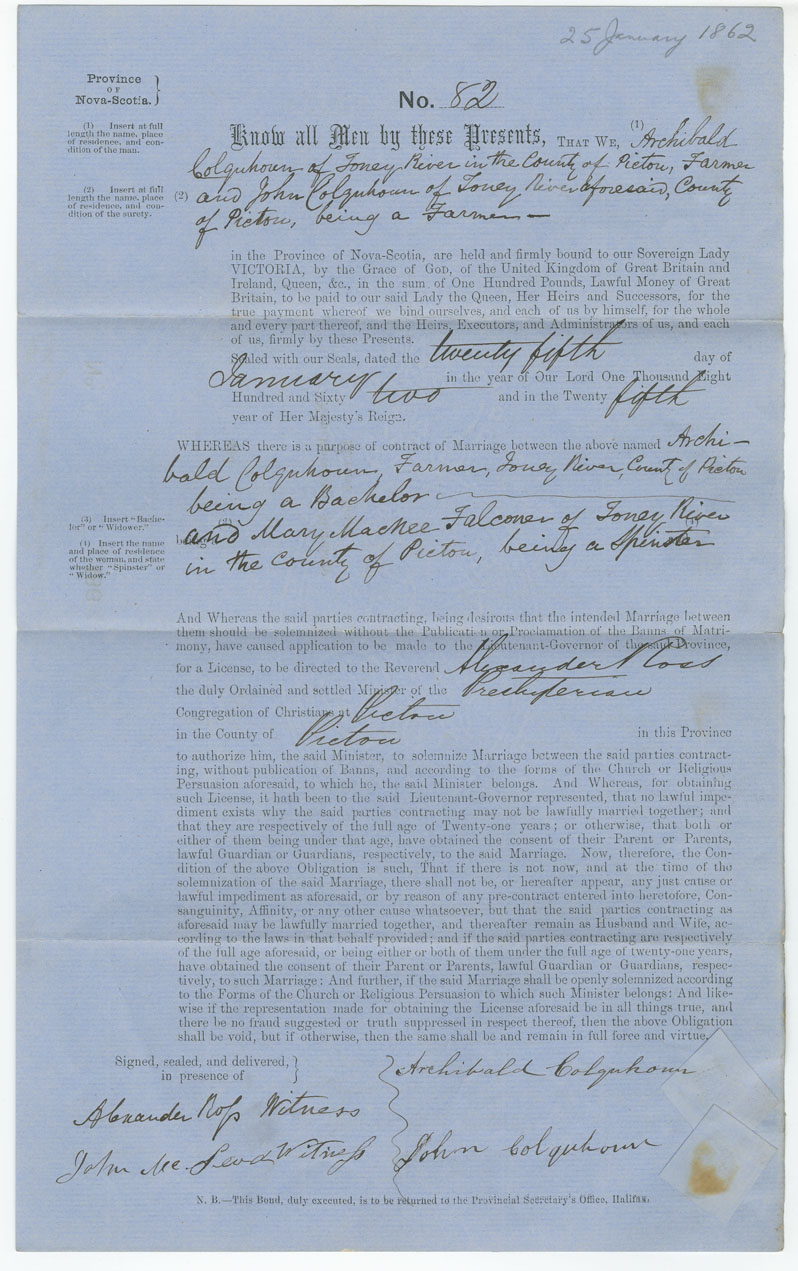 25 January 1862
Province
OF
Nova-Scotia.
No. 82
(1) Insert at full
length the name, place
of residence, and con-
dition of the man.
Know all Men by these Presents, THAT WE, (1) Archibald
Colquhoun of Toney River in the County of Pictou, Farmer
(2) Insert at full
length the name, place
of residence, and con-
dition of the surety.
(2) and John Colquhoun of Toney River aforesaid, County
of Pictou, being a Farmer —
in the Province of Nova-Scotia, are held and firmly bound to our Sovereign Lady
VICTORIA, by the Grace of GOD, of the United Kingdom of Great Britain and
Ireland, Queen, &c., in the sum of One Hundred Pounds, Lawful Money of Great
Britain, to be paid to our said Lady the Queen, Her Heirs and Successors, for the
true payment whereof we bind ourselves, and each of us by himself, for the whole
and every part thereof, and the Heirs, Executors, and Administrators of us, and each
of us, firmly by these Presents.
Sealed with our Seals, dated the twenty fifth day of
January in the year of Our Lord One Thousand Eight
Hundred and Sixty two and in the Twenty fifth
year of Her Majesty's Reign.
WHEREAS there is a purpose of contract of Marriage between the above named Archi-
bald Colquhoun, Farmer, Toney River, County of Pictou
being a Bachelor
(3) Insert "Bache-
lor" or "Widower."
(4) Insert the name
and place of residence
of the woman, and state
whether "Spinster" or
"Widow."
and Mary MacKee Falconer of Toney River
in the County of Pictou, being a Spinster
And Whereas the said parties contracting, being desirous that the intended Marriage between
them should be solemnized without the Publication or Proclamation of the Banns of Matri-
mony, have caused application to be made to the Lieutenant-Governor of the said Province,
for a License, to be directed to the Reverend Alexander Ross
the duly Ordained and settled Minister of the Presbyterian
Congregation of Christians at Pictou
in the County of Pictou in this Province
to authorize him, the said Minister, to solemnize Marriage between the said parties contract-
ing, without publication of Banns, and according to the forms of the Church or Religious
Persuasion aforesaid, to which he, the said Minister belongs. And Whereas, for obtaining
such License, it hath been to the said Lieutenant-Governor represented, that no lawful impe-
diment exists why the said parties contracting may not be lawfully married together; and
that they are respectively of the full age of Twenty-one years; or otherwise, that both or
either of them being under that age, have obtained the consent of their Parent or Parents,
lawful Guardian or Guardians, respectively, to the said Marriage. Now, therefore, the Con-
dition of the above Obligation is such, That if there is not now, and at the time of the
solemnization of the said Marriage, there shall not be, or hereafter appear, any just cause or
lawful impediment as aforesaid, or by reason of any pre-contract entered into heretofore, Con-
sanguinity, Affinity, or any other cause whatsoever, but that the said parties contracting as
aforesaid may be lawfully married together, and thereafter remain as Husband and Wife, ac-
cording to the laws in that behalf provided; and if the said parties contracting are respectively
of the full age aforesaid, or being either or both of them under the full age of twenty-one years,
have obtained the consent of their Parent or Parents, lawful Guardian or Guardians, respec-
tively, to such Marriage: And further, if the said Marriage shall be openly solemnized according
to the Forms of the Church or Religious Persuasion to which such Minister belongs: And like-
wise if the representation made for obtaining the License aforesaid be in all things true, and
there be no fraud suggested or truth suppressed in respect thereof, then the above Obligation
shall be void, but if otherwise, then the same shall be and remain in full force and virtue.
Signed, sealed, and delivered,
in presence of
Archibald Colquhoun
Alexander Ross Witness
John McLeod Witness
John Colquhoun
N. B.—This Bond, duly executed, is to be returned to the Provincial Secretary's Office, Halifax.